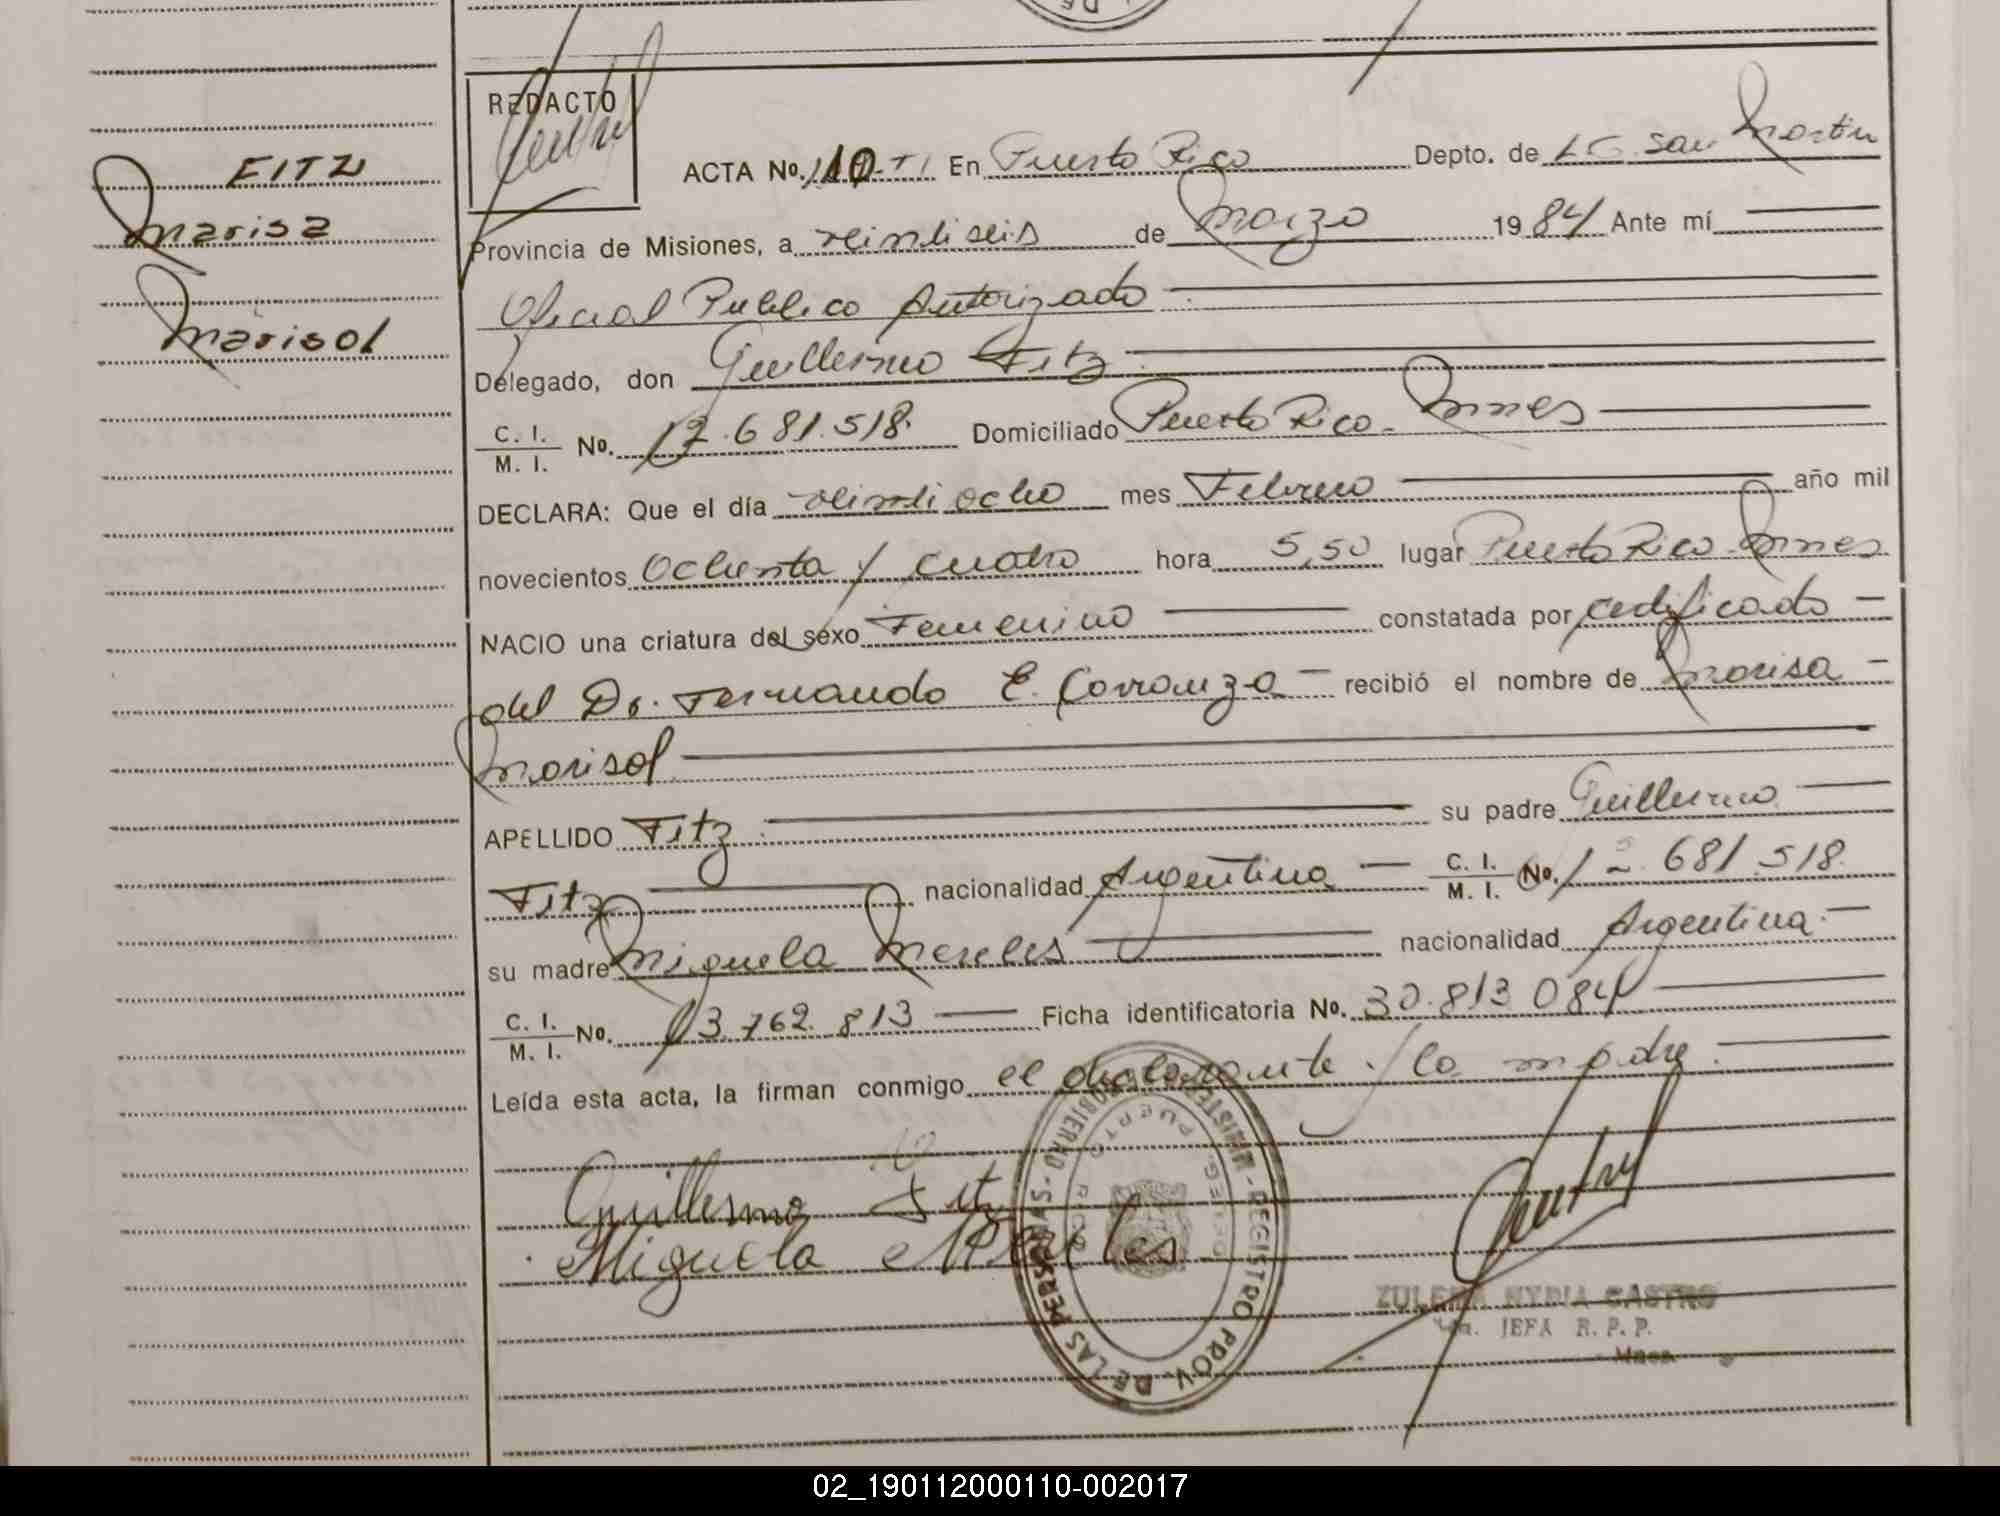 REDACTO
FITZ
Marisa
Marisol
ACTA No. 110-TI En Puerto Rico Depto. de L G. San Martin
Provincia de Misiones, a veintiseis de Marzo 1984 Ante mí
Oficial Publico Autorizado
Delegado, don Guillermo Fitz
C. I. / M. I. No. 12.681.518. Domiciliado Puerto Rico - Mnes
DECLARA: Que el día veintiocho mes Febrero año mil
novecientos ochenta y cuatro hora 5,50 lugar Puerto Rico - Mnes
NACIO una criatura del sexo Femenino constatada por certificado
del Dr. Fernando E. Carranza recibió el nombre de Marisa
Marisol
APELLIDO Fitz su padre Guillermo
Fitz nacionalidad Argentina C. I. / M. I. No. 12.681.518.
su madre Miguela Mereles nacionalidad Argentina.
C. I. / M. I. No. 13.762.813 Ficha identificatoria No. 30.813.084
Leída esta acta, la firman conmigo el declarante y la madre.
Guillermo Fitz
Miguela Mereles
REGISTRO PROV. DE LAS PERSONAS - MINISTERIO GOBIERNO
PUERTO RICO
ZULEMA NYDIA CASTRO
JEFA R. P. P.
02_190112000110-002017